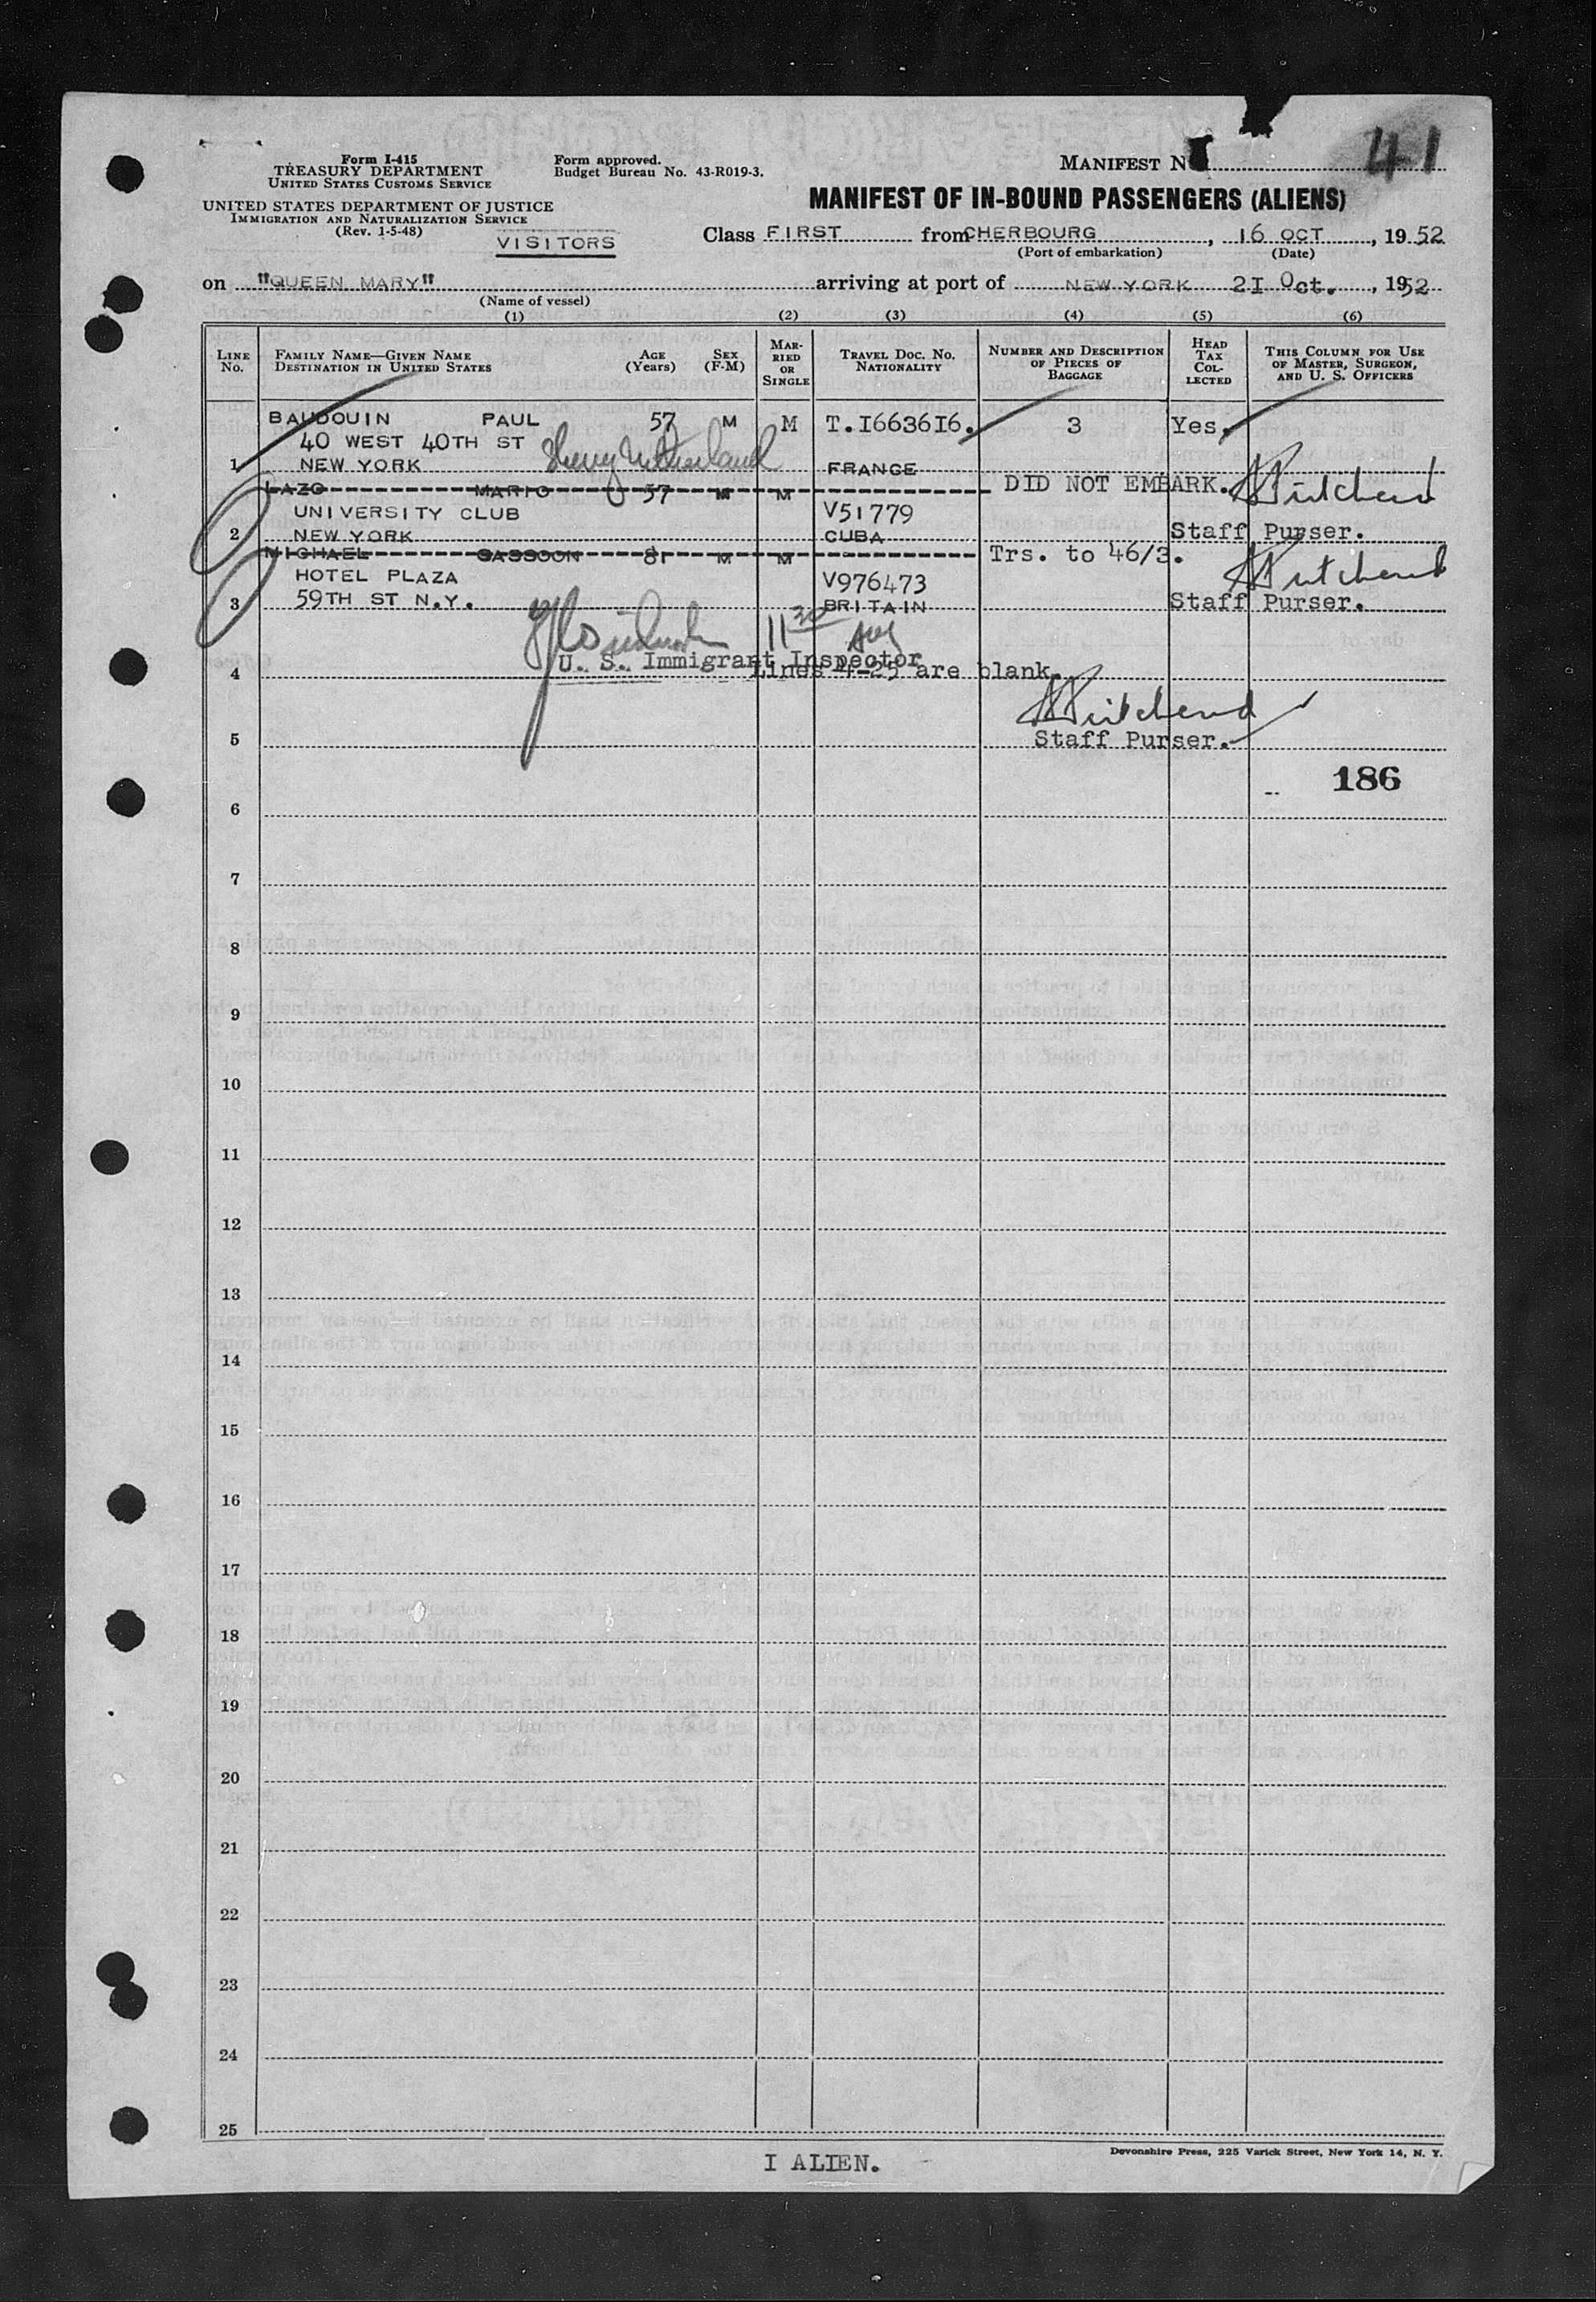 Form I-415
TREASURY DEPARTMENT
UNITED STATES CUSTOMS SERVICE
UNITED STATES DEPARTMENT OF JUSTICE
IMMIGRATION AND NATURALIZATION SERVICE
(Rev. 1-5-48)
VISITORS
Form approved.
Budget Bureau No. 43-R019-3.
MANIFEST N 41
MANIFEST OF IN-BOUND PASSENGERS (ALIENS)
Class FIRST from CHERBOURG, 16 OCT, 19 52
(Port of embarkation) (Date)
on "QUEEN MARY" arriving at port of NEW YORK 21 Oct., 1952
(Name of vessel)
(1) (2) (3) (4) (5) (6)
LINE No.
FAMILY NAME—GIVEN NAME
DESTINATION IN UNITED STATES
AGE (Years)
SEX (F-M)
MARRIED OR SINGLE
TRAVEL DOC. NO.
NATIONALITY
NUMBER AND DESCRIPTION OF PIECES OF BAGGAGE
HEAD TAX COLLECTED
THIS COLUMN FOR USE OF MASTER, SURGEON, AND U. S. OFFICERS
BAUDOUIN PAUL 57 M M T.1663616. 3 Yes.
40 WEST 40TH ST Sherry Netherland
1 NEW YORK FRANCE
LAZO MARIO 57 M M DID NOT EMBARK. Pritchard
UNIVERSITY CLUB V51779
2 NEW YORK CUBA Staff Purser.
MICHAEL SASSOON 81 M M Trs. to 46/3. Pritchard
HOTEL PLAZA V976473
3 59TH ST N.Y. BRITAIN Staff Purser.
11 30
U. S. Immigrant Inspector
4 Lines 4-25 are blank.
Pritchard
5 Staff Purser.
186
6
7
8
9
10
11
12
13
14
15
16
17
18
19
20
21
22
23
24
25
I ALIEN.
Devonshire Press, 225 Varick Street, New York 14, N. Y.